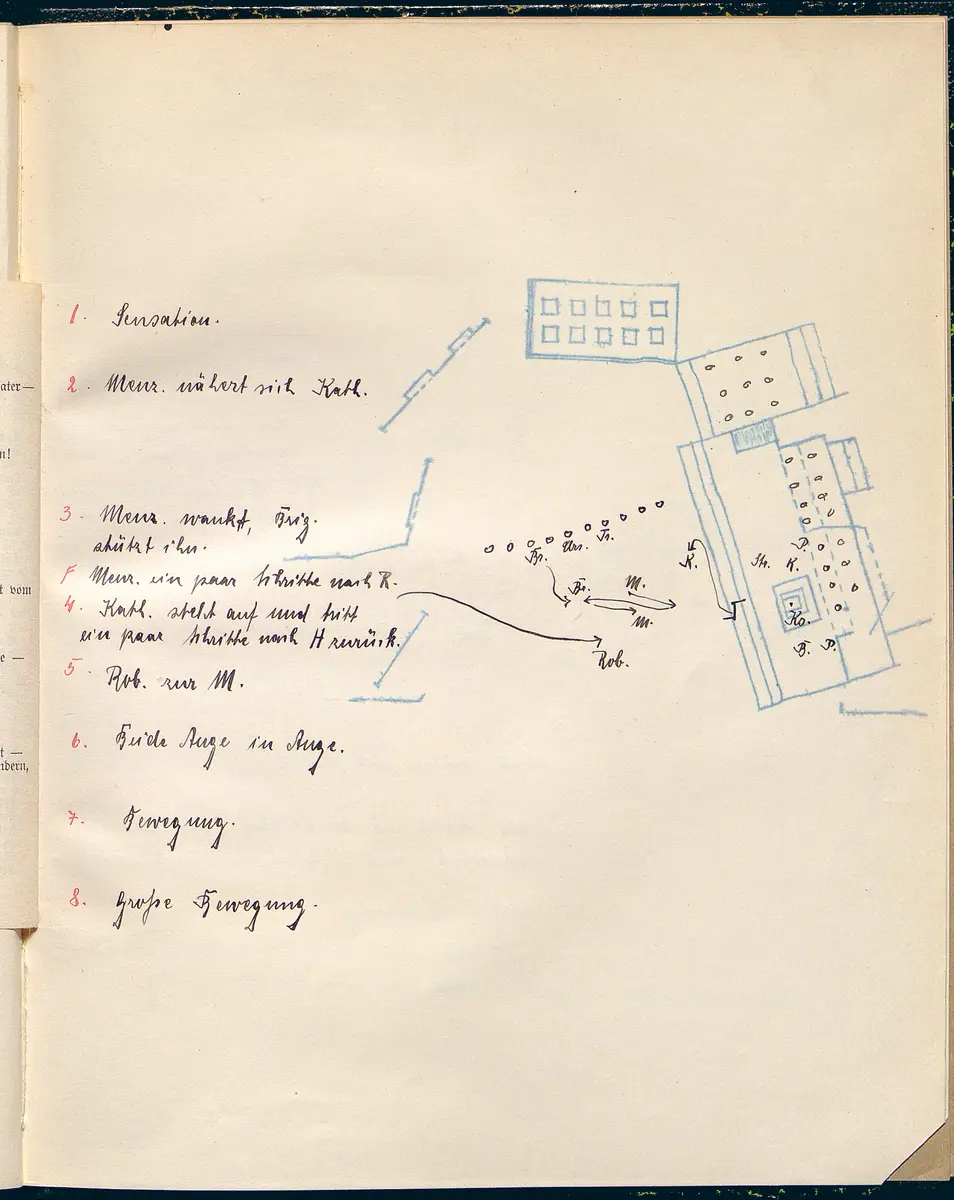 1. Sensation.
2. Menz. nähert sich Kath.
3. Menz. wankt, Brig.
stützt ihn.
F Menz. ein paar Schritte nach R.
4. Kath. steht auf und tritt
ein paar Schritte nach H zurück.
5. Rob. zur M.
6. Beide Auge in Auge.
7. Bewegung.
8. Große Bewegung.
ater—
n!
t vom
e —
t —
ndern,
Br. Urs. Tr.
Br. M.
M.
Rob.
K.
Str. K. P.
Ko.
B. P.